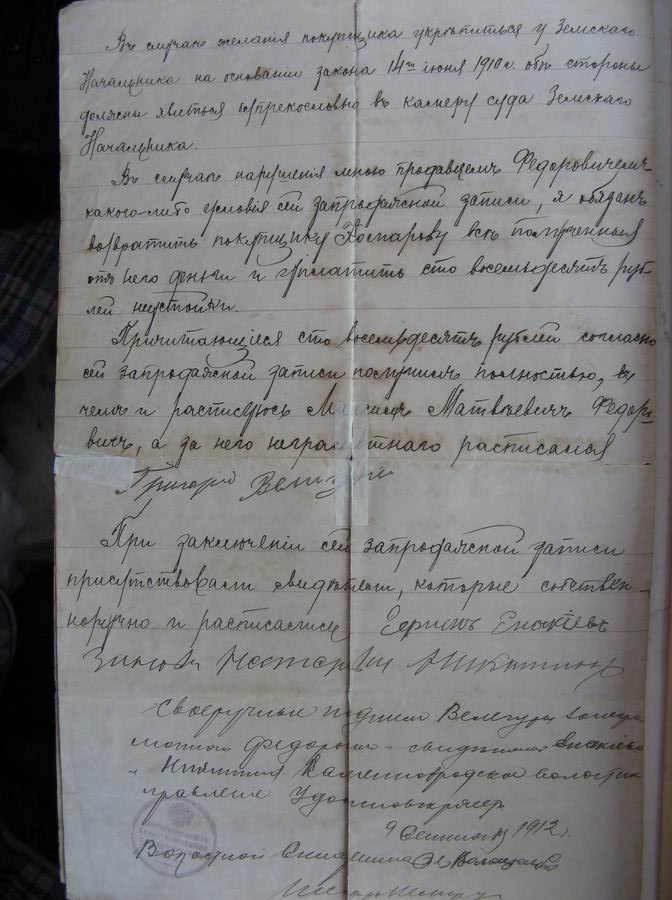 Въ случаѣ желанія покупщика укрѣпиться у Земскаго
Начальника на основаніи закона 14го іюня 1910 г. обѣ стороны
должны явиться безпрекословно въ камеру суда Земскаго
Начальника.
Въ случаѣ нарушенія мною продавцемъ Федоровичемъ
какого-либо условія сей запродажной записи, я обязанъ
возвратить покупщику Комарову всѣ полученныя
отъ него деньги и уплатить сто восемьдесятъ руб-
лей неустойки.
Причитающіеся сто восемьдесятъ рублей согласно
сей запродажной записи получилъ полностью, въ
чемъ и расписуюсь Максимъ Матвѣевичъ Федоро-
вичъ, а за него неграмотнаго расписался
Григорій Велигура
При заключеніи сей запродажной записи
присутствовали свидѣтели, которые собствен-
норучно и расписались
Никитинъ
Своеручныя подписи Велегуры
Федорович свидѣтелей
и Никитина Каменнобродское волостное
правленіе удостовѣряетъ
9 1912 г.
Волостной Старшина